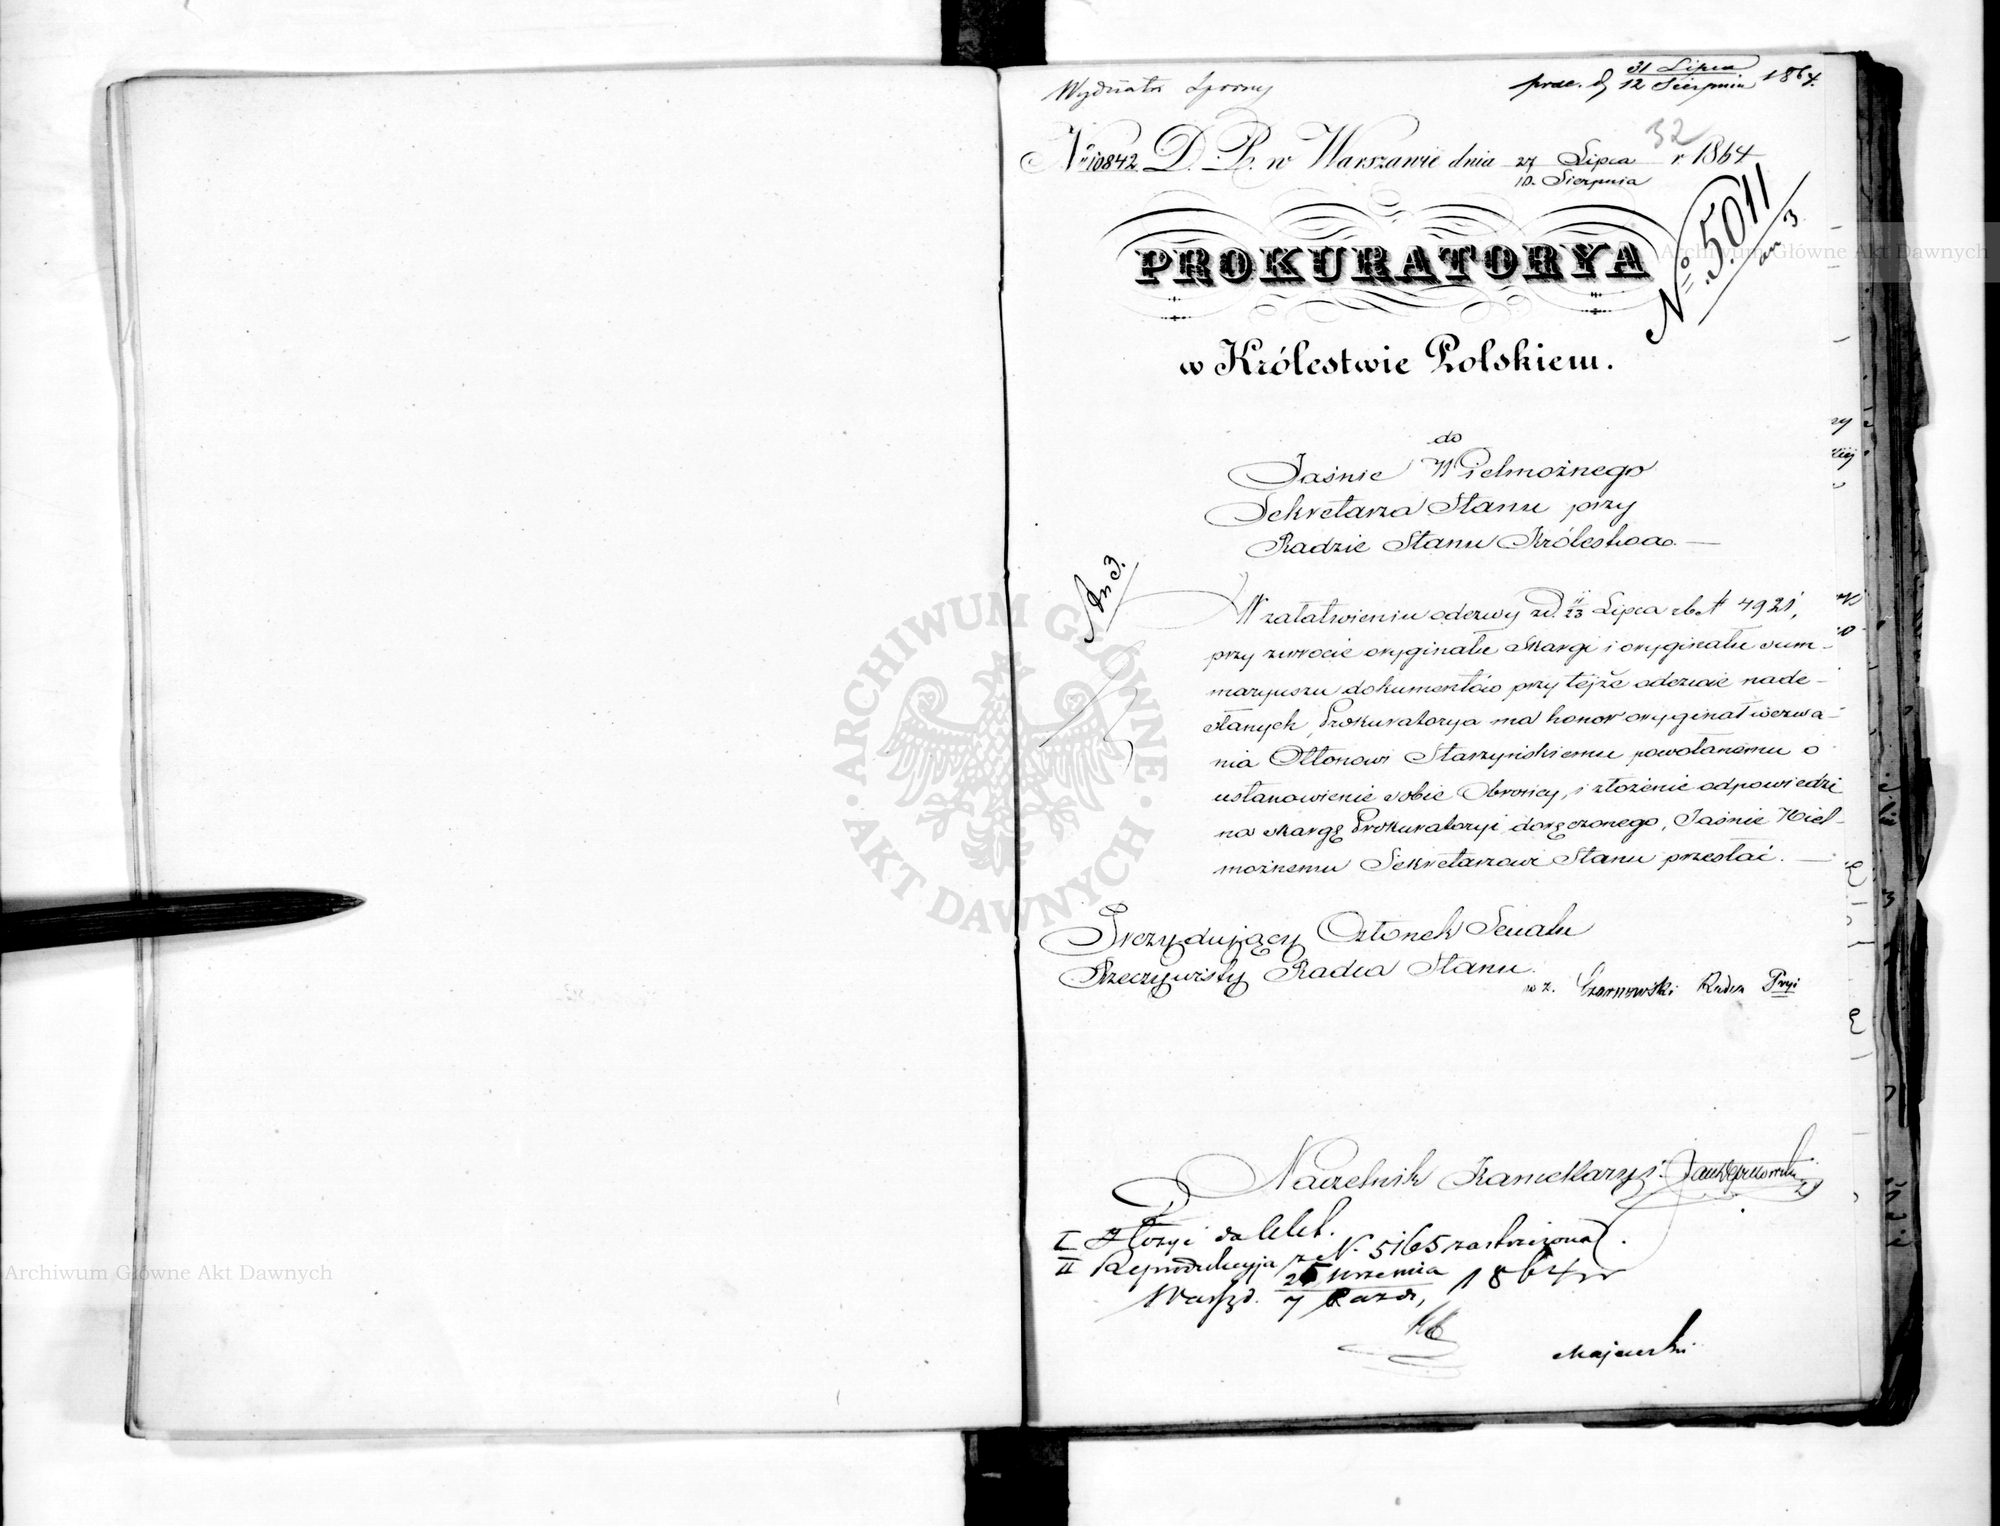 Wydział Sporny
prae. d. 31 Lipca / 12 Sierpnia 1864.
32
No 10842 D. P. w Warszawie dnia 27 Lipca / 10. Sierpnia r 1864
No 5011
an 3
PROKURATORYA
w Królestwie Polskiem.
do
Jaśnie Wielmożnego
Sekretarza Stanu przy
Radzie Stanu Królestwa. —
An 3.
W załatwieniu odezwy z d. 11/23 Lipca rb. N 4921,
przy zwrocie oryginału skargi i oryginału sum-
maryuszu dokumentów przy tejże odezwie nade-
słanych, Prokuratorya ma honor oryginał wezwa-
nia Ottonowi Starzyńskiemu powołanemu o
ustanowienie sobie Obrońcy, i złożenie odpowiedzi
na skargę Prokuratoryi doręczonego, Jaśnie Wiel-
możnemu Sekretarzowi Stanu przesłać. —
Prezydujący Członek Senatu
Rzeczywisty Radca Stanu.
w z. Czarnowski Radca Pryi
Naczelnik Kancellaryi
I Złożyć do akt.
II Reprodukcyja z N. 5165 zastrzeżona.
Warsz. d. 25 Września / 7 Paźdz, 1864 r
Majewski
ARCHIWUM GŁÓWNE AKT DAWNYCH
Archiwum Główne Akt Dawnych
Archiwum Główne Akt Dawnych